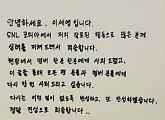 안녕하세요. 이세영입니다.
SNL 코리아에서 저의 잘못된 행동으로 많은 분께
심려를 끼쳐드려서 죄송합니다.
현장에서 멤버 한분 한분에게 사과드렸고,
이 글을 통해 모든 팬 분들과 멤버 분들에게
다시 한 번 사과드리고 싶습니다.
다시는 이런 일이 없도록 반성하고, 또 반성하겠습니다.
정말 진심으로 죄송합니다..